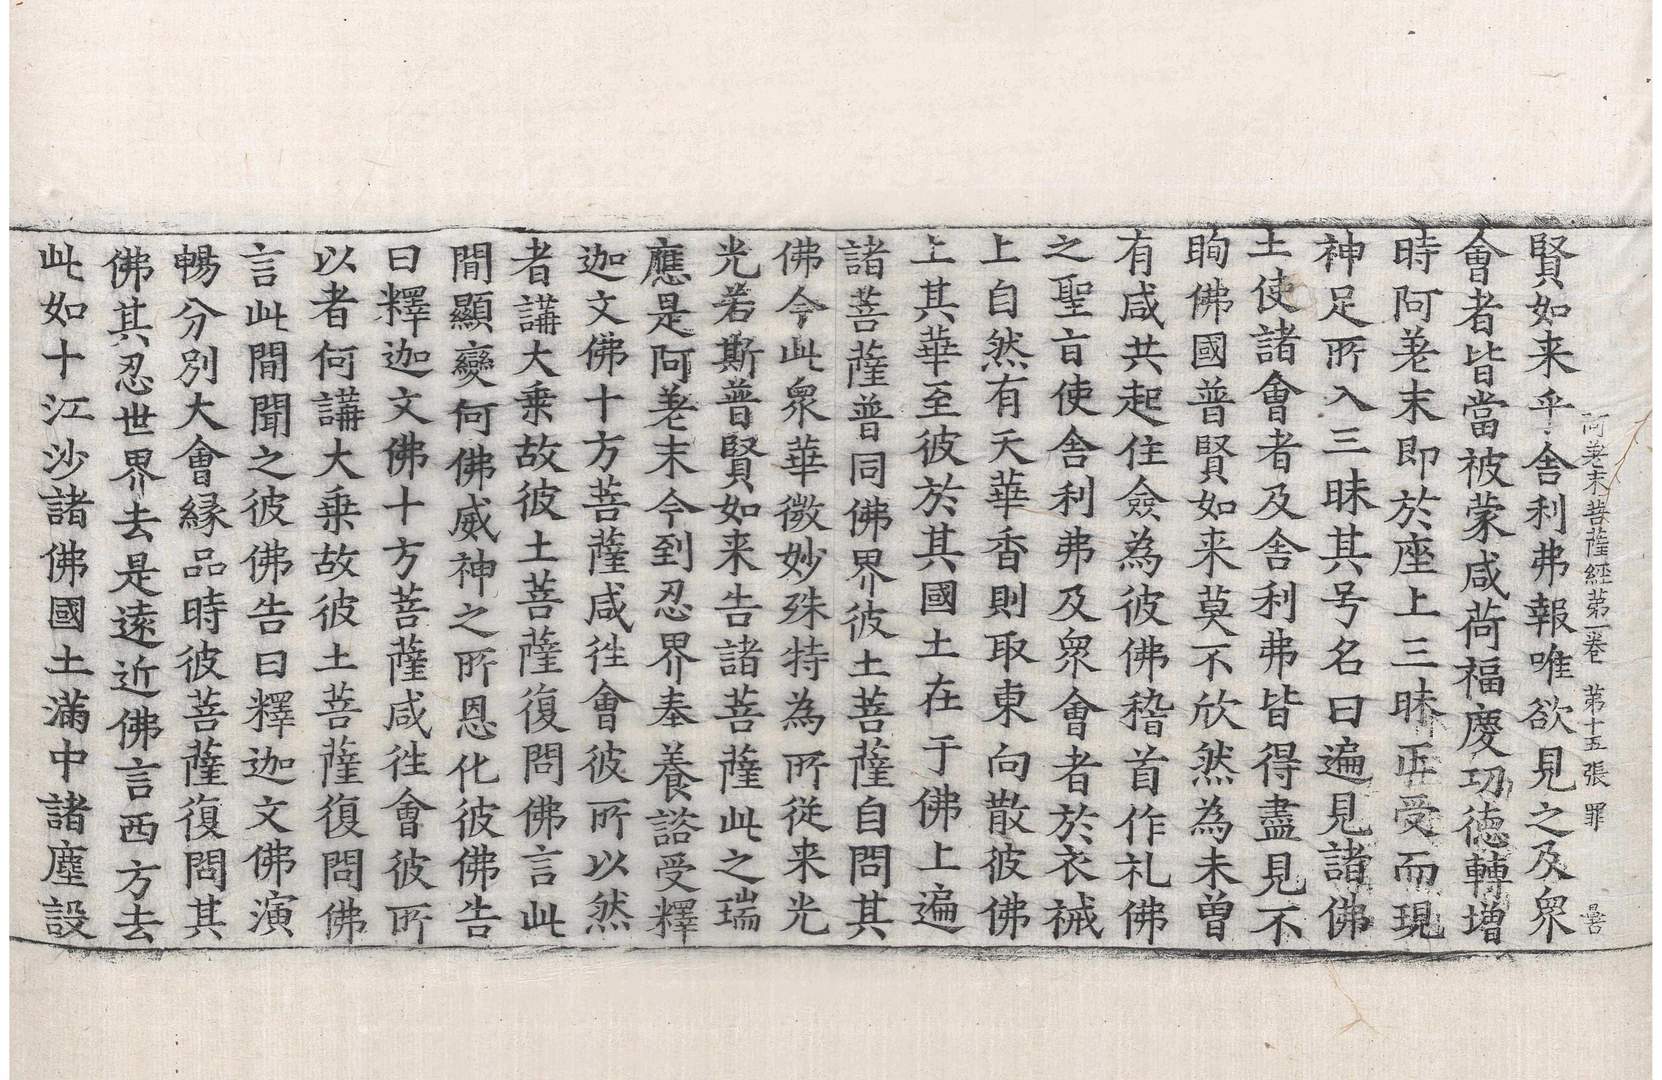 阿差末菩薩經第一卷 第十五張 罪
賢如来乎舍利弗報唯欲見之及衆
會者皆當被蒙咸荷福慶㓛德轉增
時阿差末即於座上三昧正受而現
神足所入三昧其号名曰遍見諸佛
土使諸會者及舍利弗皆得盡見不
眴佛國普賢如来莫不欣然為未曽
有咸共起住僉為彼佛稽首作礼佛
之聖旨使舍利弗及衆會者於衣裓
上自然有天華香則取東向散彼佛
上其華至彼於其國土在于佛上遍
諸菩薩普同佛界彼土菩薩自問其
佛今此衆華微妙殊特為所從来光
光若斯普賢如来告諸菩薩此之瑞
應是阿差末今到忍界奉養諮受釋
迦文佛十方菩薩咸徃會彼所以然
者講大乗故彼土菩薩復問佛言此
間顯變何佛威神之所恩化彼佛告
曰釋迦文佛十方菩薩咸徃會彼所
以者何講大乗故彼土菩薩復問佛
言此間聞之彼佛告曰釋迦文佛演
暢分別大會縁品時彼菩薩復問其
佛其忍世界去是遠近佛言西方去
此如十江沙諸佛國土滿中諸塵設